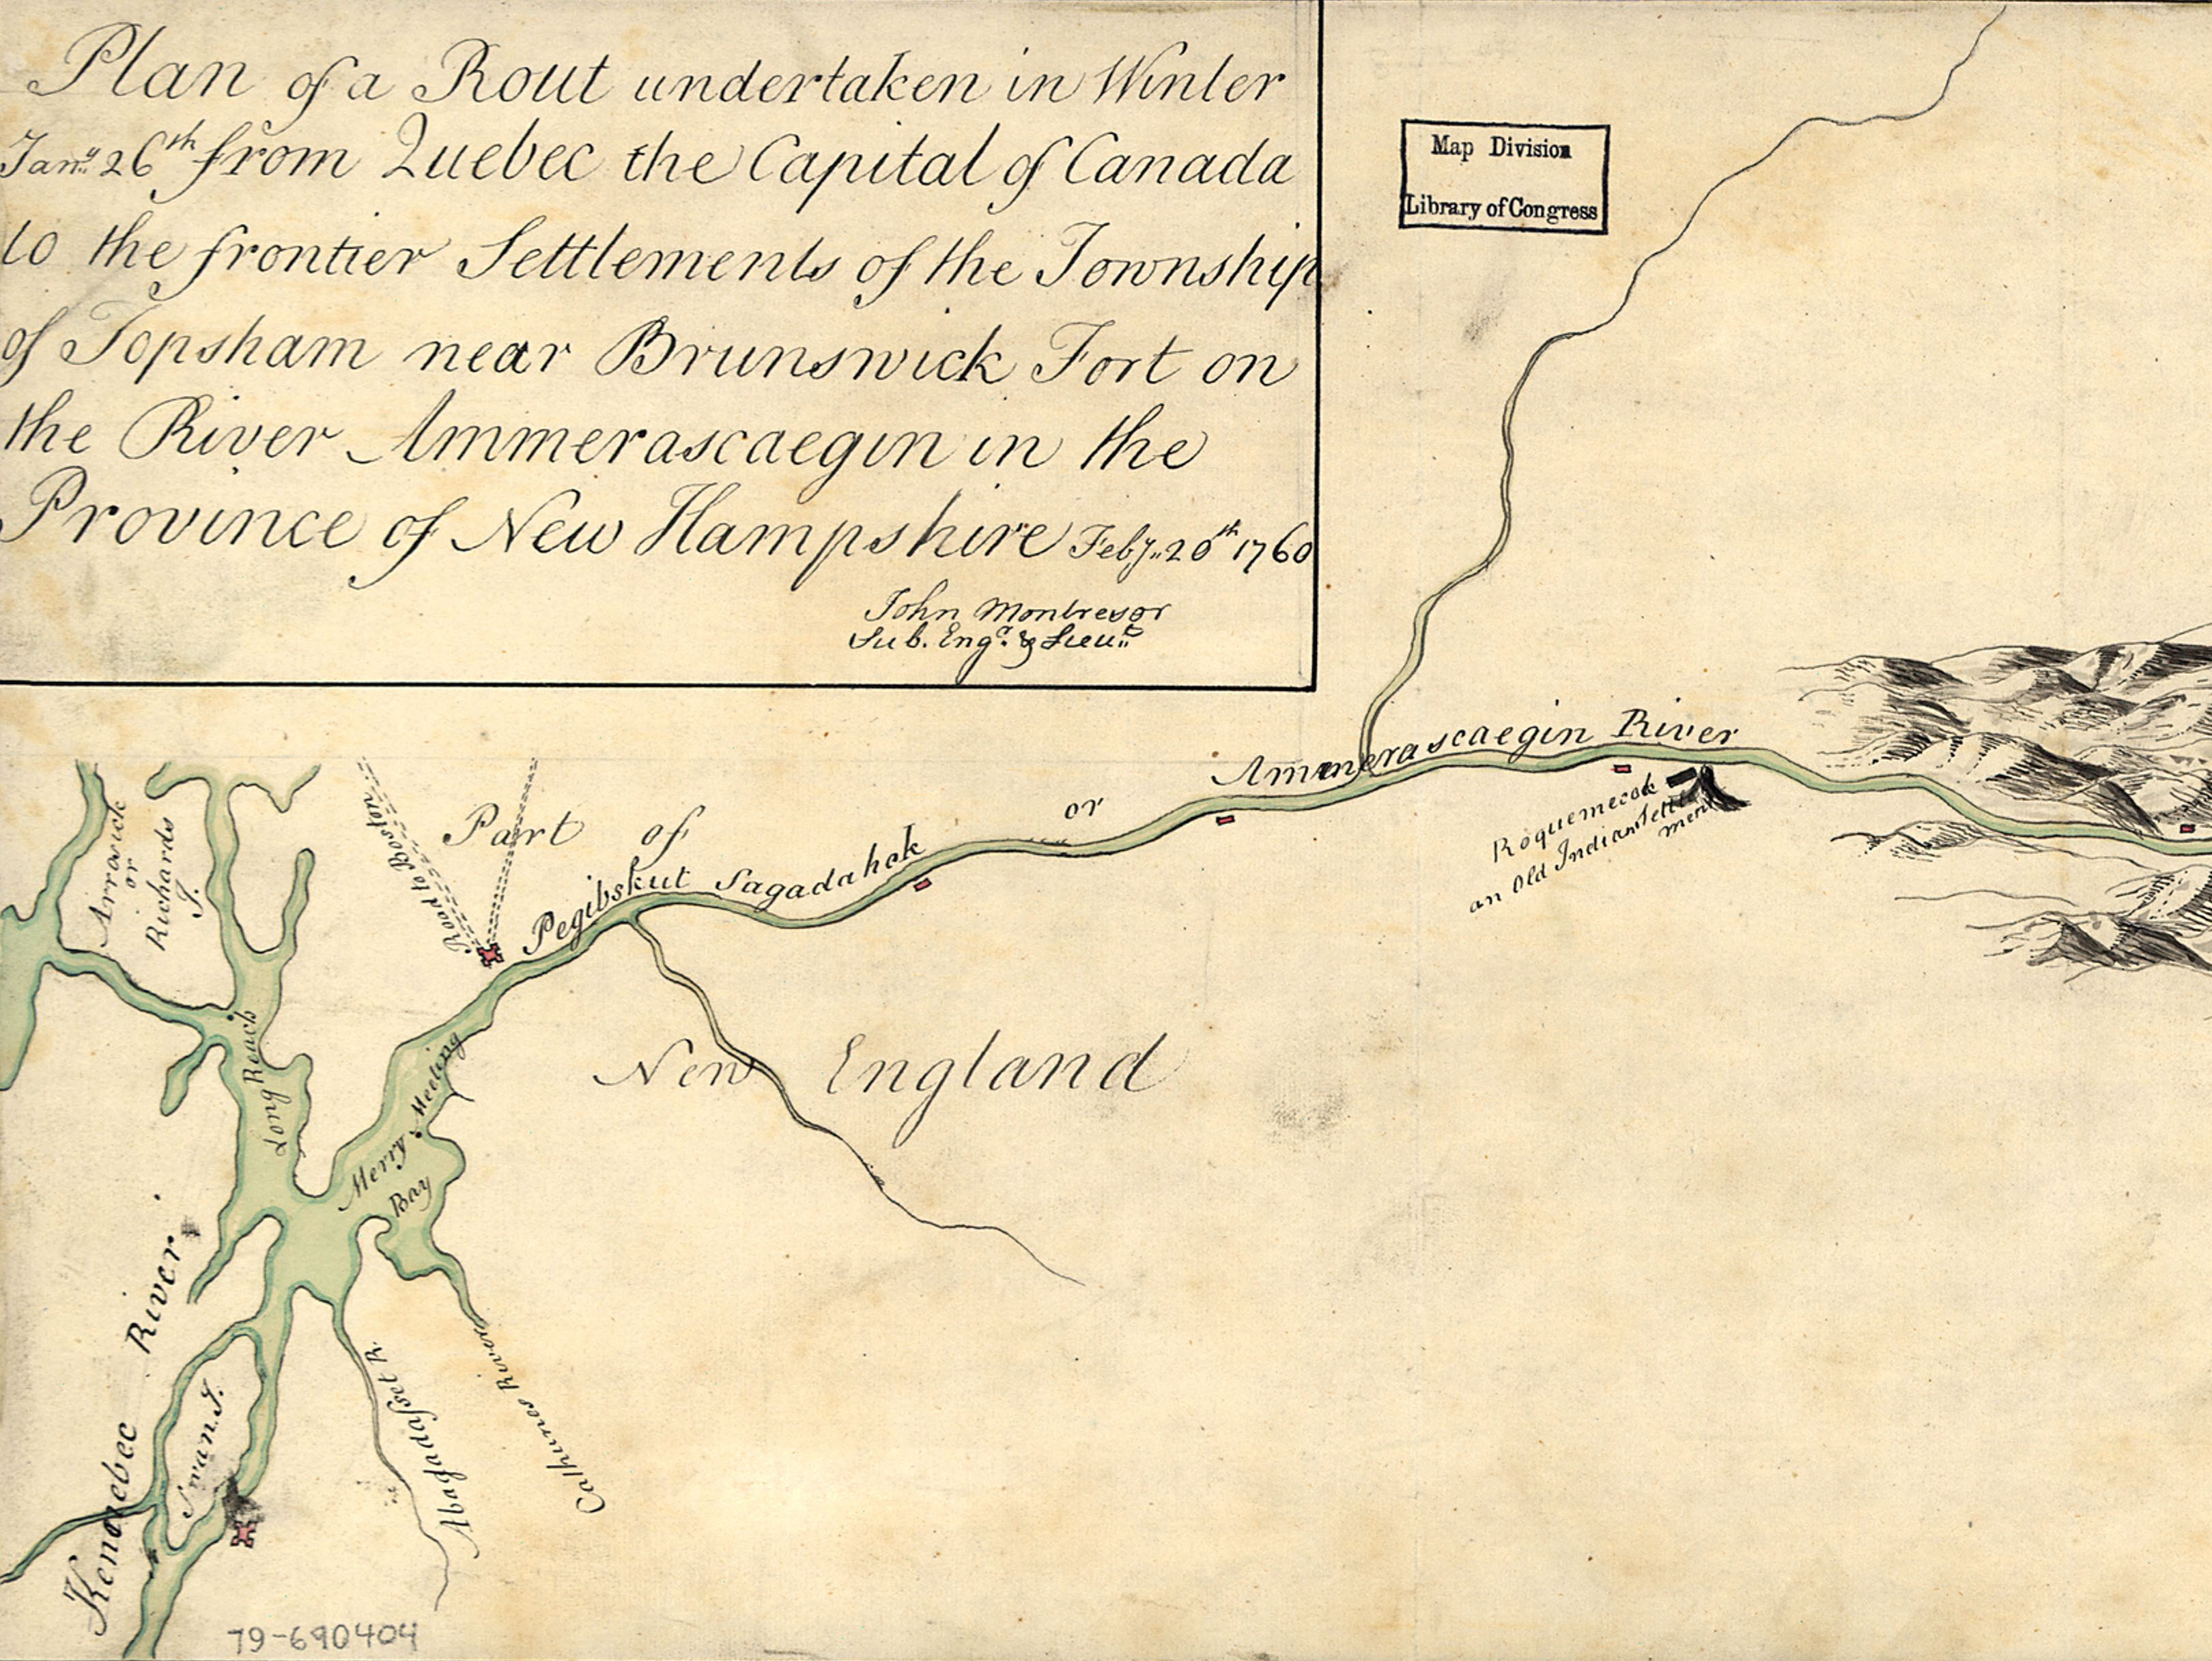 Plan of a Rout undertaken in Winter
Jany. 26th from Quebec the Capital of Canada
to the frontier Settlements of the Township
of Topsham near Brunswick Fort on
the River Ammerascaegin in the
Province of New Hampshire Feby. 20th 1760
John Montresor
Sub. Engr. & Lieut.
Map Division
Library of Congress
Ammerascaegin River
or
Sagadahok
Pegibskut
Roquemecok
an Old Indian Settle
ment
Part of
New England
Road to Boston
Arrowick
or
Richards
I.
Long Reach
Merry Meeting
Bay
Kennebec River
Swan I.
Abagadasset R.
Calhunes River
79-690404